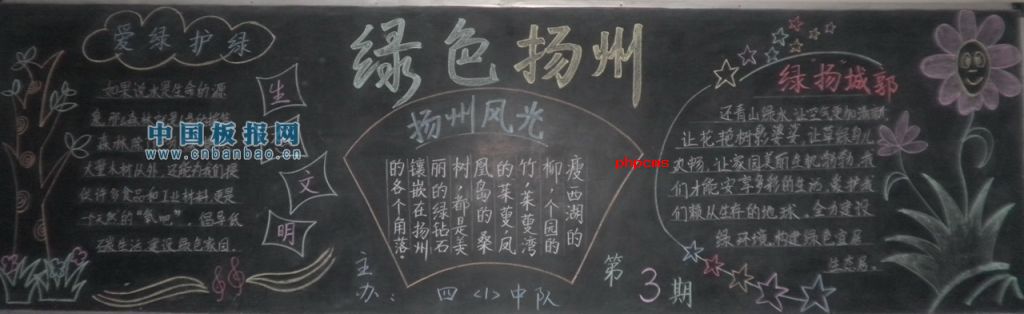 爱绿护绿
如果说水是生命的源
森林除
大量木材以外，还能为我们提
供许多食品和工业材料，更是
一个天然的“氧吧”。倡导低
碳生活，建设绿色家园。
生
文
明
中国板报网
www.cnbanbao.cn
绿色扬州
扬州风光
瘦西湖的
柳，个园的
竹，茱萸湾
的茱萸，凤
凰岛的桑
树，都是美
丽的绿钻石
镶嵌在扬州
的各个角落。
phpcms
主办：
四〈1〉中队
第3期
绿扬城郭
还看山绿水，让空气更加清新
让花艳树影婆娑，让草绿鱼儿
欢畅，让家园美丽生机勃勃，我
们才能安享多彩的生活，爱护我
们赖以生存的地球，全力建设
绿环境，构建绿色宜居
生态居。